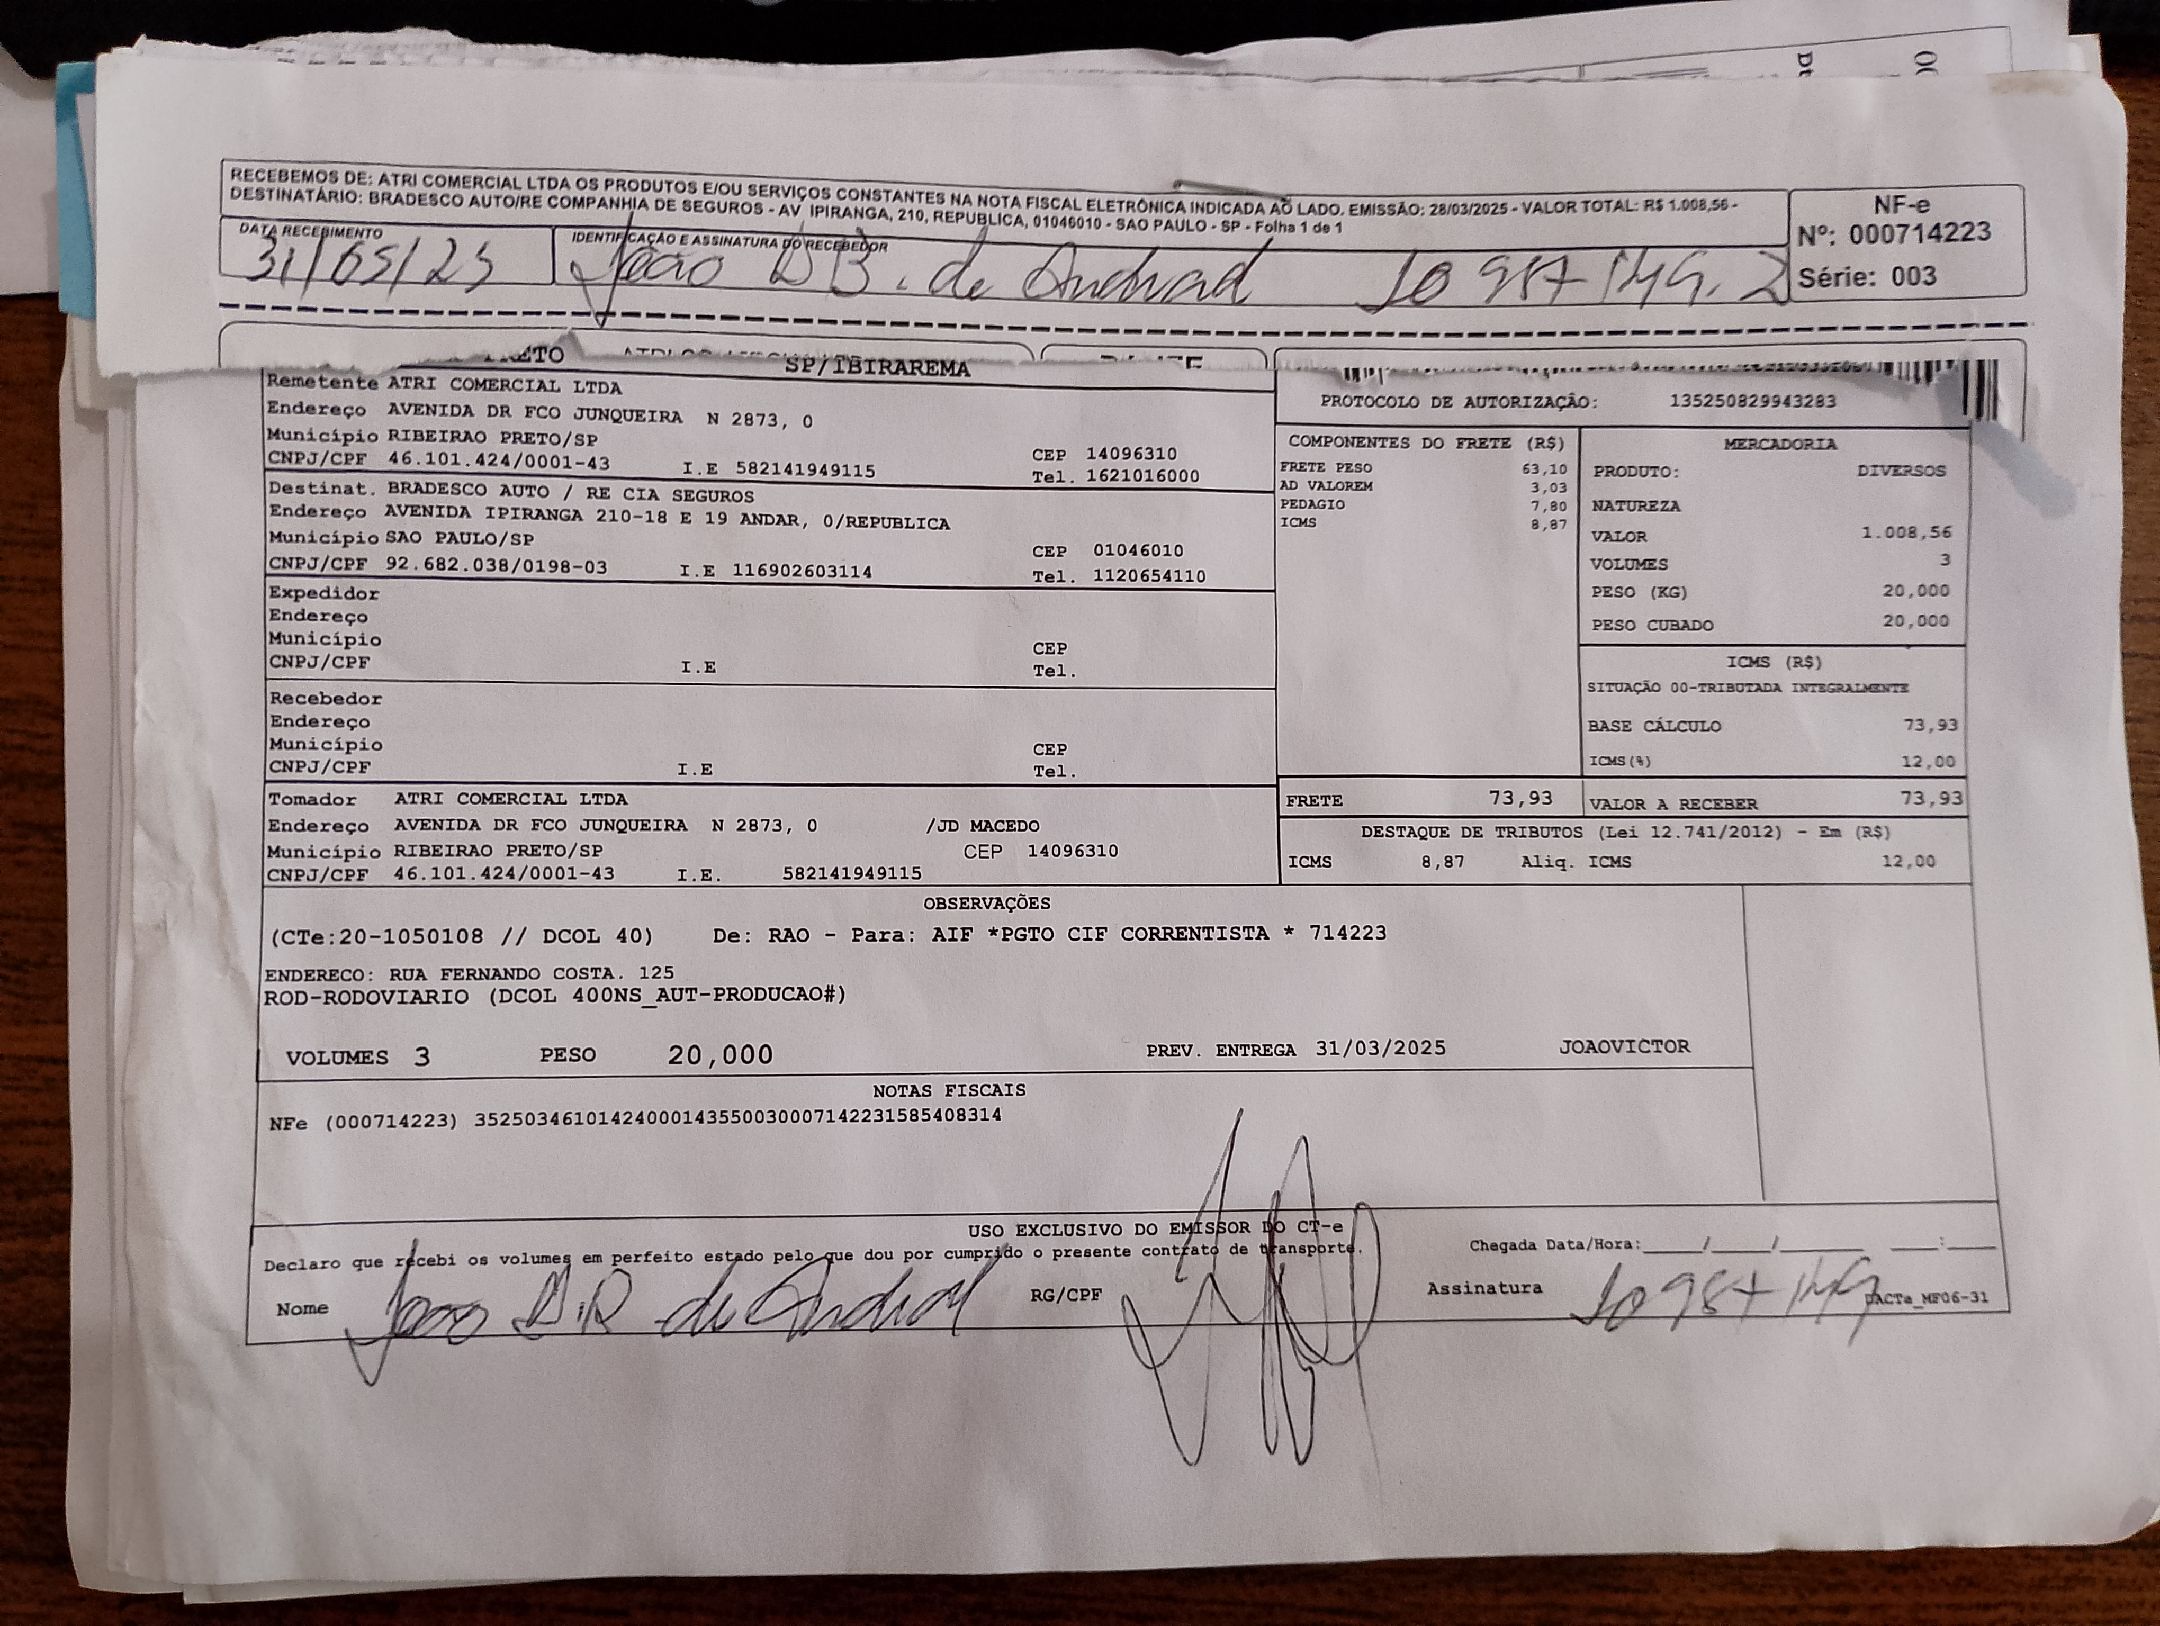 RECEBEMOS DE: ATRI COMERCIAL LTDA OS PRODUTOS E/OU SERVIÇOS CONSTANTES NA NOTA FISCAL ELETRÔNICA INDICADA AO LADO. EMISSÃO: 28/03/2025 - VALOR TOTAL: R$ 1.008,56 -
DESTINATÁRIO: BRADESCO AUTO/RE COMPANHIA DE SEGUROS - AV IPIRANGA, 210, REPUBLICA, 01046010 - SAO PAULO - SP - Folha 1 de 1
NF-e
Nº: 000714223
Série: 003
DATA RECEBIMENTO
IDENTIFICAÇÃO E ASSINATURA DO RECEBEDOR
João B. de Andrad
SP/IBIRAREMA
Remetente ATRI COMERCIAL LTDA
Endereço AVENIDA DR FCO JUNQUEIRA N 2873, 0
Município RIBEIRAO PRETO/SP CEP 14096310
CNPJ/CPF 46.101.424/0001-43 I.E 582141949115 Tel. 1621016000
Destinat. BRADESCO AUTO / RE CIA SEGUROS
Endereço AVENIDA IPIRANGA 210-18 E 19 ANDAR, 0/REPUBLICA
Município SAO PAULO/SP CEP 01046010
CNPJ/CPF 92.682.038/0198-03 I.E 116902603114 Tel. 1120654110
Expedidor
Endereço
Município CEP
CNPJ/CPF I.E Tel.
Recebedor
Endereço
Município CEP
CNPJ/CPF I.E Tel.
Tomador ATRI COMERCIAL LTDA
Endereço AVENIDA DR FCO JUNQUEIRA N 2873, 0 /JD MACEDO
Município RIBEIRAO PRETO/SP CEP 14096310
CNPJ/CPF 46.101.424/0001-43 I.E. 582141949115
PROTOCOLO DE AUTORIZAÇÃO: 135250829943283
COMPONENTES DO FRETE (R$)
FRETE PESO 63,10
AD VALOREM 3,03
PEDAGIO 7,80
ICMS 8,87
MERCADORIA
PRODUTO: DIVERSOS
NATUREZA
VALOR 1.008,56
VOLUMES 3
PESO (KG) 20,000
PESO CUBADO 20,000
ICMS (R$)
SITUAÇÃO 00-TRIBUTADA INTEGRALMENTE
BASE CÁLCULO 73,93
ICMS(%) 12,00
FRETE 73,93 VALOR A RECEBER 73,93
DESTAQUE DE TRIBUTOS (Lei 12.741/2012) - Em (R$)
ICMS 8,87 Aliq. ICMS 12,00
OBSERVAÇÕES
(CTe:20-1050108 // DCOL 40) De: RAO - Para: AIF *PGTO CIF CORRENTISTA * 714223
ENDERECO: RUA FERNANDO COSTA. 125
ROD-RODOVIARIO (DCOL 400NS_AUT-PRODUCAO#)
VOLUMES 3 PESO 20,000 PREV. ENTREGA 31/03/2025 JOAOVICTOR
NOTAS FISCAIS
NFe (000714223) 35250346101424000143550030007142231585408314
USO EXCLUSIVO DO EMISSOR DO CT-e
Declaro que recebi os volumes em perfeito estado pelo que dou por cumprido o presente contrato de transporte. Chegada Data/Hora:____/____/______ ___:___
Nome João de Andrad RG/CPF Assinatura
DACTe_MF06-31